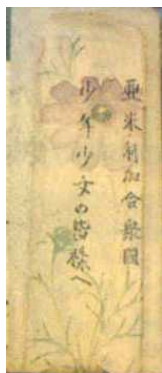 亜米利加合衆國
少年少女の皆様へ